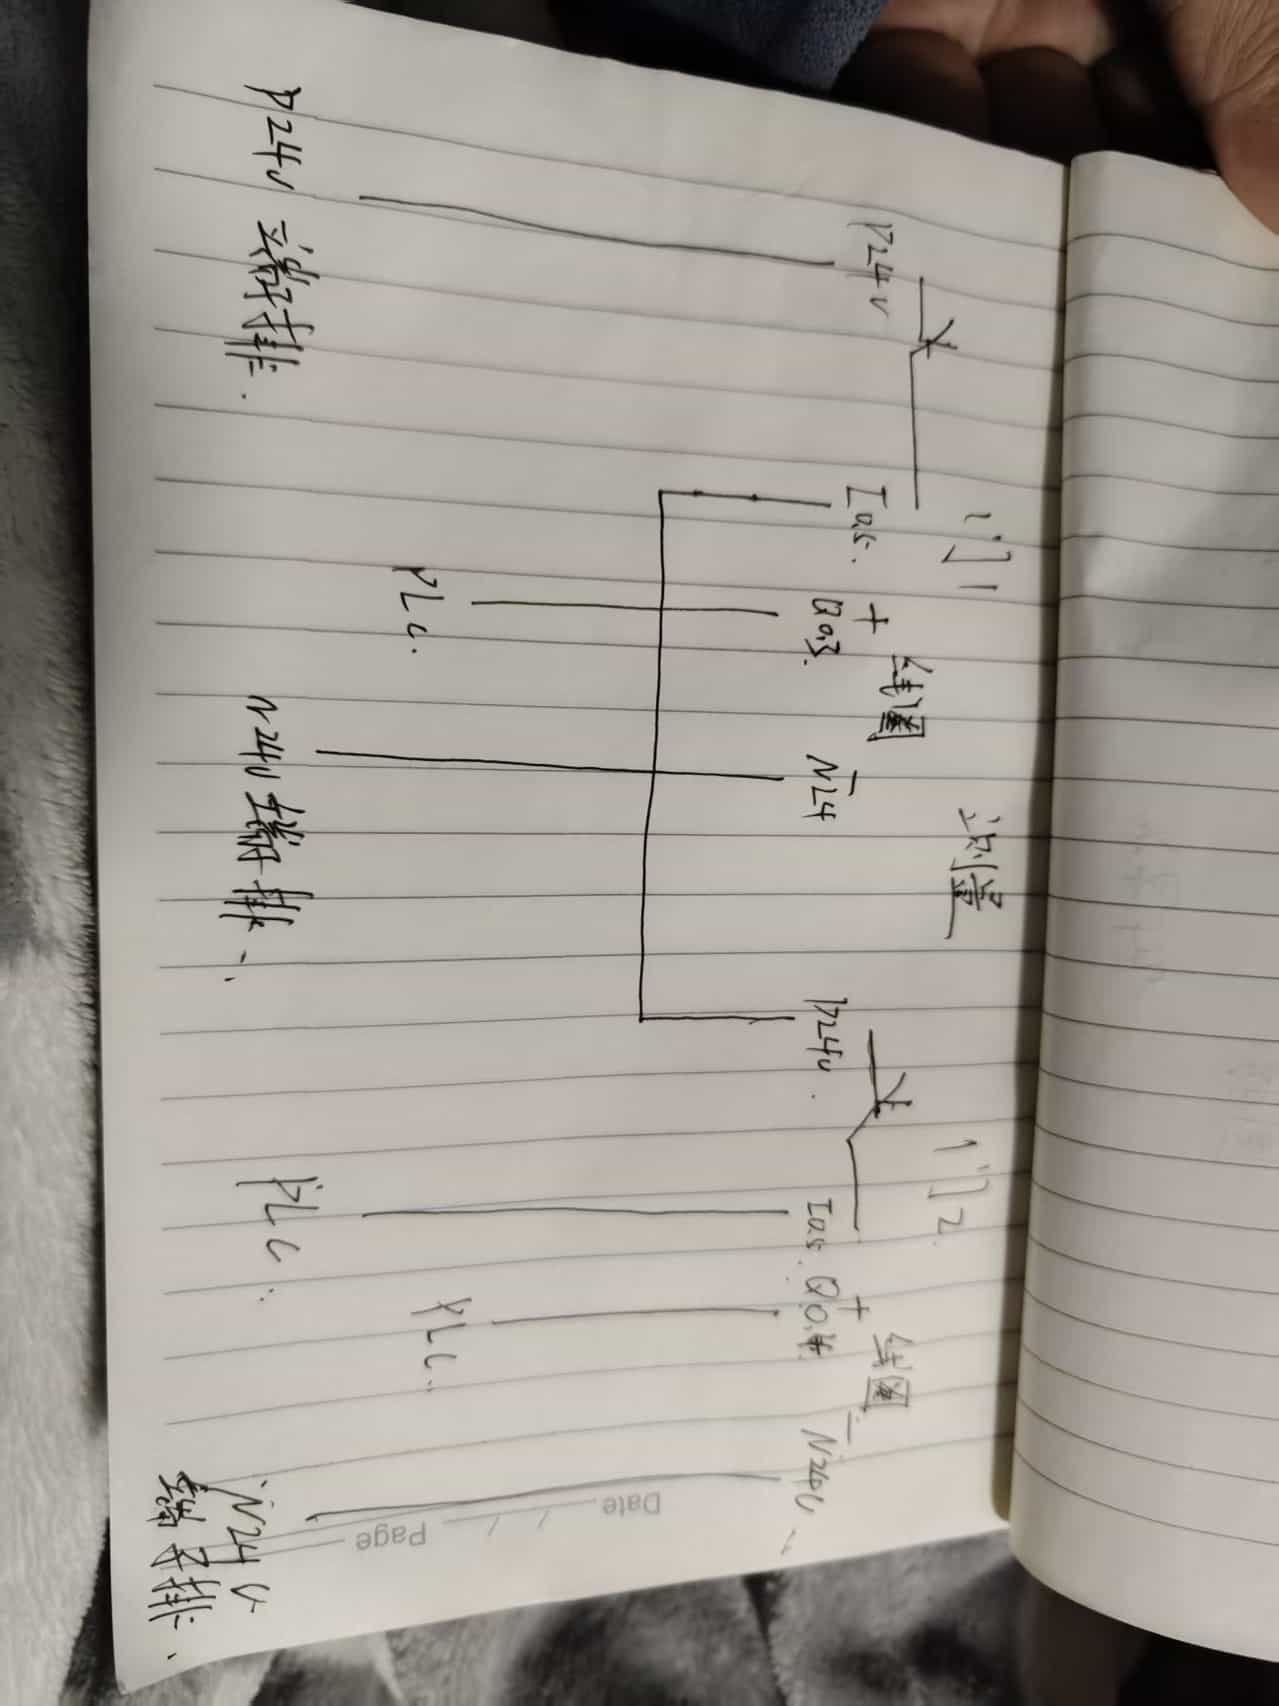 门1 测量 门2
P24v I0.5. + Q0.3. 线圈 - N24 P24v. I0.5. + Q0.4. 线圈 - N24v
PLC. PLC. PLC.
P24v 端子排. N24v 端子排. N24v 端子排.
Date / /
Page